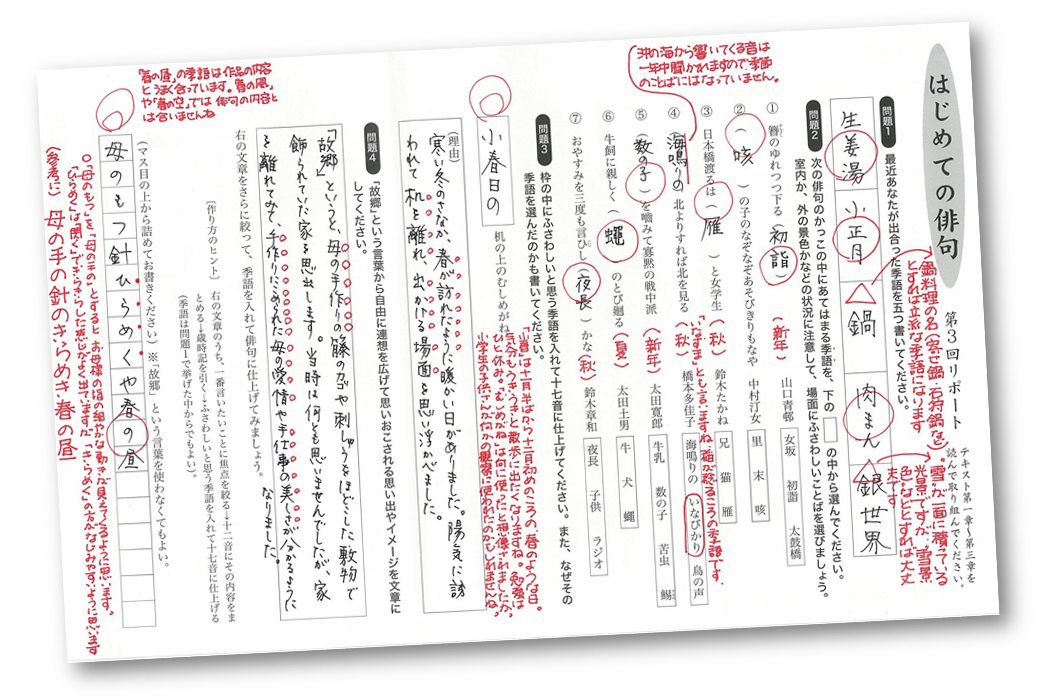 はじめての俳句
第3回リポート
テキスト第一章〜第三章を
読んで取り組んでください。
問題1
最近あなたが出合った季語を五つ書いてください。
生姜湯
小正月
鍋
肉まん
銀世界
鍋料理の名(寄せ鍋、石狩鍋など)
とすれば立派な季語になります
雪が一面に積もっている
光景ですが、雪景
色などとすれば大丈
夫です
問題2
次の俳句のかっこの中にあてはまる季語を、下の□の中から選んでください。
室内か、外の景色かなどの状況に注意して、場面にふさわしいことばを選びましょう。
① 簪のゆれつつ下る(初詣)(新年)
山口青邨
女坂 初詣 太鼓橋
②(咳)の子のなぞなぞあそびきりもなや
中村汀女
里 末 咳
③ 日本橋渡るは(雁)と女学生(秋)
鈴木たかね
兄 猫 雁
④(海鳴りの)北よりすれば北を見る(秋)
橋本多佳子
海鳴りの いなびかり 鳥の声
沖の海から響いてくる音は
一年中聞かれますので、季節
のことばにはなっていません。
⑤(数の子)を嚙みて寡黙の戦中派(新年)
太田寛郎
牛乳 数の子 苦虫
⑥ 牛飼に親しく(蠅)のとび廻る(夏)
太田土男
牛 犬 蠅
⑦ おやすみを三度も言ひし(夜長)かな(秋)
鈴木章和
夜長 子供 ラジオ
問題3
枠の中にふさわしいと思う季語を入れて十七音に仕上げてください。また、なぜその
季語を選んだのかも書いてください。
小春日の
机の上のむしめがね
(理由)
寒い冬のさなか、春が訪れたように暖かい日がありました。陽気に誘
われて机を離れ、出かける場面を思い浮かべました。
問題4
「故郷」という言葉から自由に連想を広げて思いおこされる思い出やイメージを文章に
してください。
「故郷」というと、母の手作りの籐のカゴや刺しゅうをほどこした敷物で
飾られていた家を思い出します。当時は何とも思いませんでしたが、家
を離れてみて、手作りにこめられた母の愛情や手仕事の美しさが分かるように
なりました。
右の文章をさらに絞って、季語を入れて俳句に仕上げてみましょう。
〔作り方のヒント〕
右の文章のうち、一番言いたいことに焦点を絞る→十二音にその内容をま
とめる→歳時記を引く→ふさわしいと思う季語を入れて十七音に仕上げる
(季語は問題1で挙げた中からでもよい)。
(マス目の上から詰めてお書きください)※「故郷」という言葉を使わなくてもよい。
母のもつ針ひらめくや春の昼
「春の昼」の季語は作品の内容
とうまく合っています。「春の風」
や「春の空」では俳句の内容と
は合いませんね
(参考に) 母の手の針のきらめき春の昼